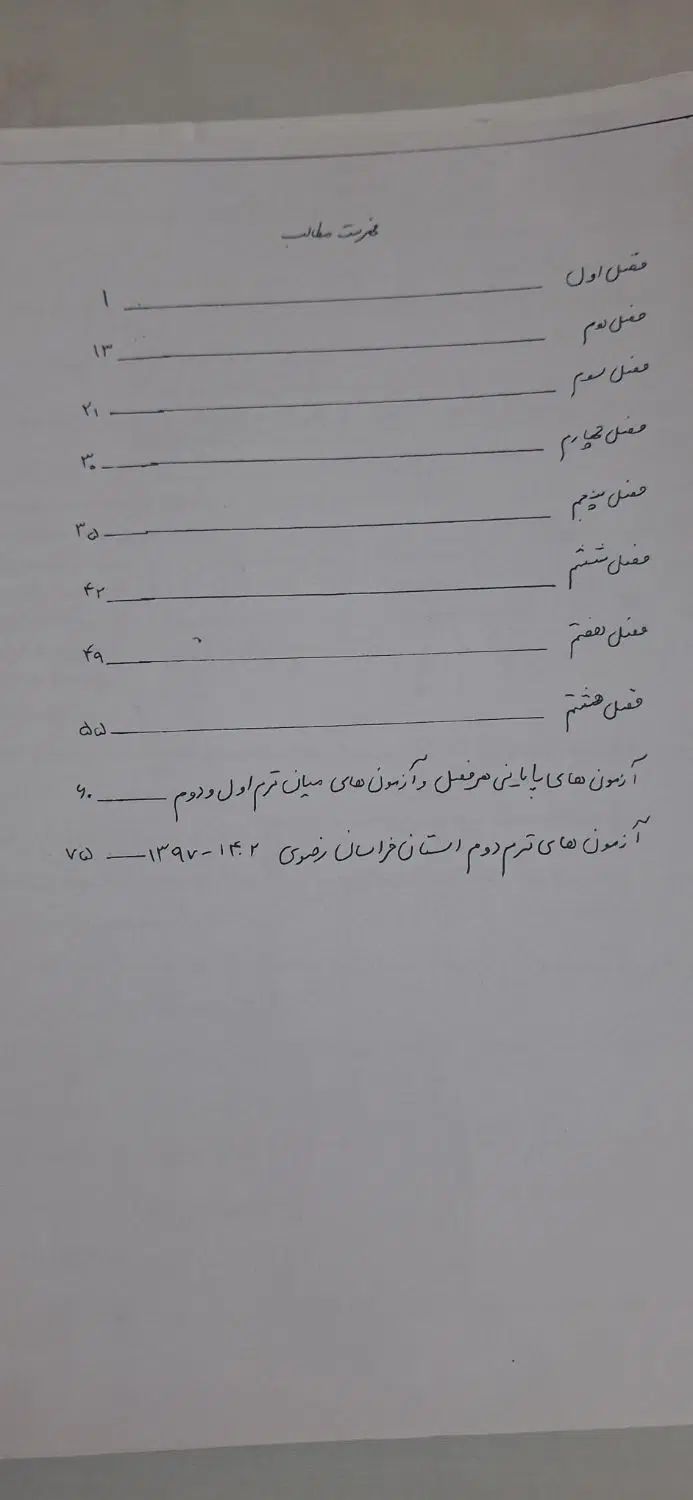 فهرست مطالب
فصل اول ۱
فصل دوم ۱۳
فصل سوم ۲۱
فصل چهارم ۳۰
فصل پنجم ۳۵
فصل ششم ۴۲
فصل هفتم ۴۹
فصل هشتم ۵۵
آزمون های پایانی هر فصل و آزمون های میان ترم اول و دوم ۶۰
آزمون های ترم دوم استان خراسان رضوی ۱۴۰۲-۱۳۹۷ ۷۵